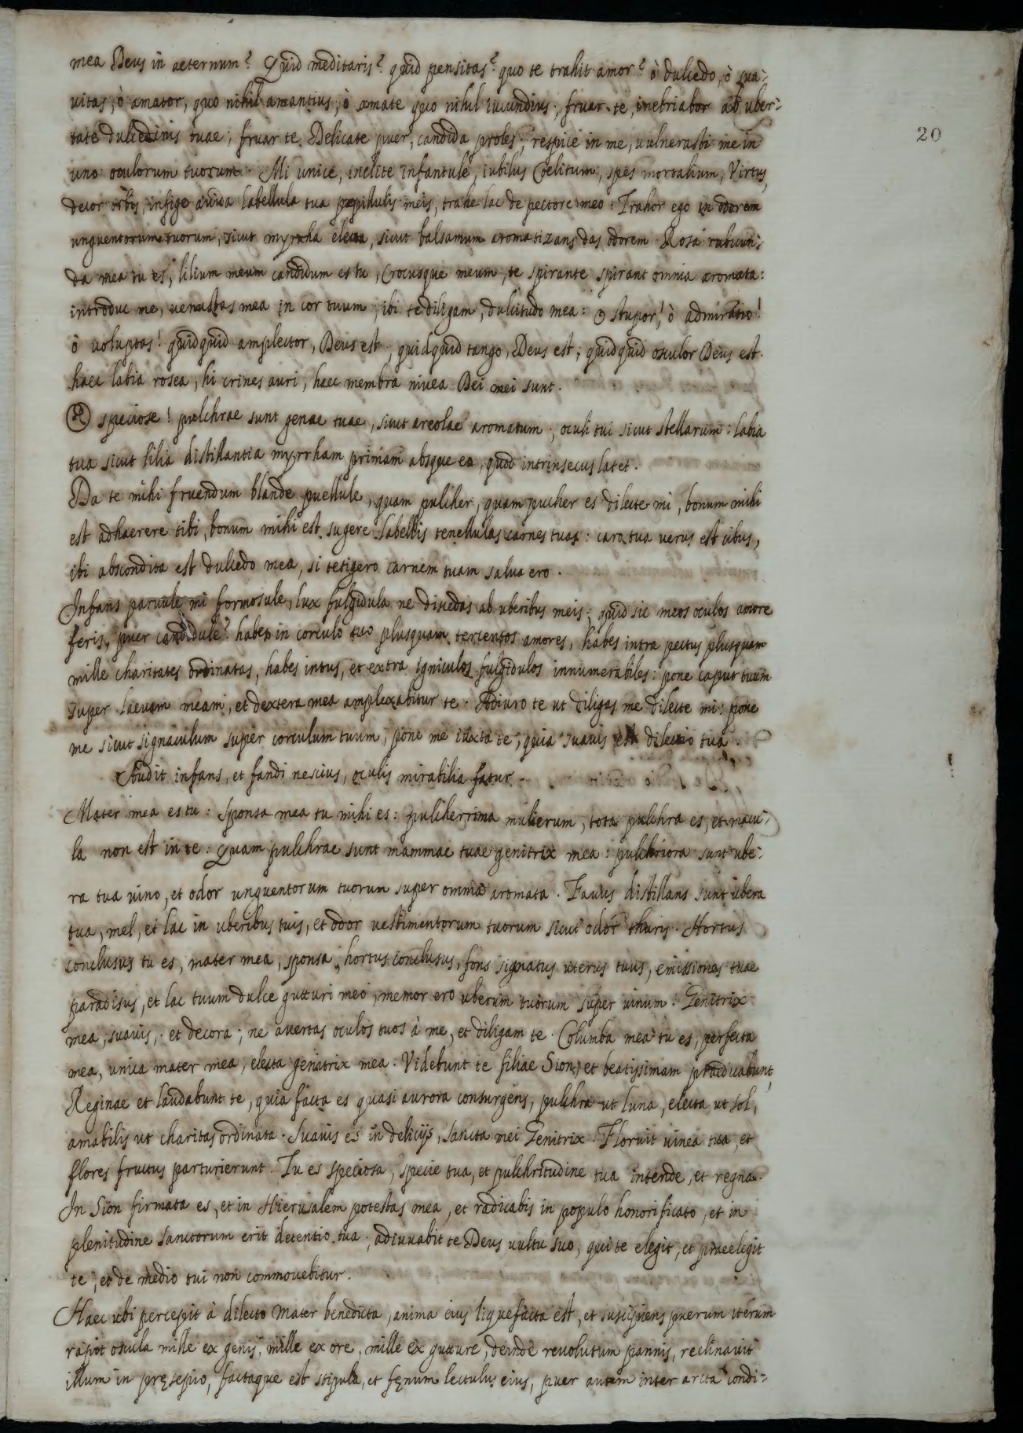 mea Deus in aeternum? Quid meditaris? quid pensitas? quo te trahit amor? ò dulcedo, ò sua-
uitas, ò amator, quo nihil amantius, ò amate quo nihil iucundius, fruar te, inebriabor ab uber-
20
tate dulcedinis tuae, fruar te. Delicate puer, candida proles, respice in me, uulnerasti me in
uno oculorum tuorum. Mi unice, inclite infantule, iubilus Coelitum, spes mortalium, Virtus,
decor orbis, infige labellula tua papillulis meis, trahe lac de pectore meo. Trahor ego in odorem
unguentorum tuorum, sicut myrrha electa, sicut balsamum aromatizans das odorem. Rosa rubicun-
da mea tu es, lilium meum candidum es tu, Crocusque meum, te spirante spirant omnia aromata:
introduc me, uenustas mea in cor tuum, ibi te diligam, dulcitudo mea: O stupor! ò admiratio!
ò uoluptas! quidquid amplector, Deus est, quidquid tango, Deus est, quidquid osculor Deus est.
haec labia rosea, hi crines auri, haec membra niuea Dei mei sunt.
O speciose! pulchrae sunt genae tuae, sicut areolae aromatum, oculi tui sicut stellarum: labia
tua sicut lilia distillantia myrrham primam absque eo, quod intrinsecus latet.
Da te mihi fruendum blande puellule, quam pulcher, quam pucher es dilecte mi, bonum mihi
est adhaerere tibi, bonum mihi est sugere labellis tenellulas carnes tuas: caro tua uerus est cibus,
ibi abscondita est dulcedo mea, si tetigero carnem tuam salua ero.
Infans paruule mi formosule, lux fulgidula ne discedas ab uberibus meis: quid sic meos oculos amore
feris, puer candidule? habes in corculo tuo plusquam tercentos amores, habes intra pectus plusquam
mille charitates ordinatas, habes intus, et extra igniculos fulgidulos innumerabiles: pone caput tuum
super laeuam meam, et dextera mea amplexabitur te. Adiuro te ut diligas me dilecte mi: pone
me sicut signaculum super corculum tuum, pone me iuxta te, quia suauis est dilectio tua.
Audit infans, et fandi nescius, oculis mirabilia fatur.
Mater mea es tu: Sponsa mea tu mihi es: pulcherrima mulierum, tota pulchra es, et macu-
la non est in te: Quam pulchrae sunt mammae tuae genitrix mea: pulchriora sunt ube-
ra tua uino, et odor unguentorum tuorum super omnia aromata. Fauus distillans sunt ubera
tua, mel, et lac in uberibus tuis, et odor uestimentorum tuorum sicut odor thuris. Hortus
conclusus tu es, mater mea, sponsa, hortus conclusus, fons signatus uterus tuus, emissiones tuae
paradisus, et lac tuum dulce gutturi meo, memor ero uberum tuorum super uinum. Genitrix
mea, suauis, et decora, ne auertas oculos tuos à me, et diligam te. Columba mea tu es, perfecta
mea, unica mater mea, electa genitrix mea. Videbunt te filiae Sion, et beatissimam praedicabunt,
Reginae et laudabunt te, quia facta es quasi aurora consurgens, pulchra ut luna, electa ut sol,
amabilis ut charitas ordinata. Suauis es in delicijs, sancta mei Genitrix. Floruit uinea tua, et
flores fructus parturierunt. Tu es speciosa, specie tua, et pulchritudine tua intende, et regna.
In Sion firmata es, et in Hierusalem potestas mea, et radicabis in populo honorificato, et in
plenitudine sanctorum erit detentio tua, adiuuabit te Deus uultu suo, qui te elegit, et praeelegit
te, et de medio tui non commouebitur.
Haec ubi percepit à dilecto Mater benedicta, anima eius liquefacta est, et suscipiens puerum iterum
rapit oscula mille ex genis, mille ex ore, mille ex gutture, deinde reuolutum pannis, reclinauit
illum in pręsepio, factaque est stipula, et fęnum lectulus eius, puer autem inter arcta condi-